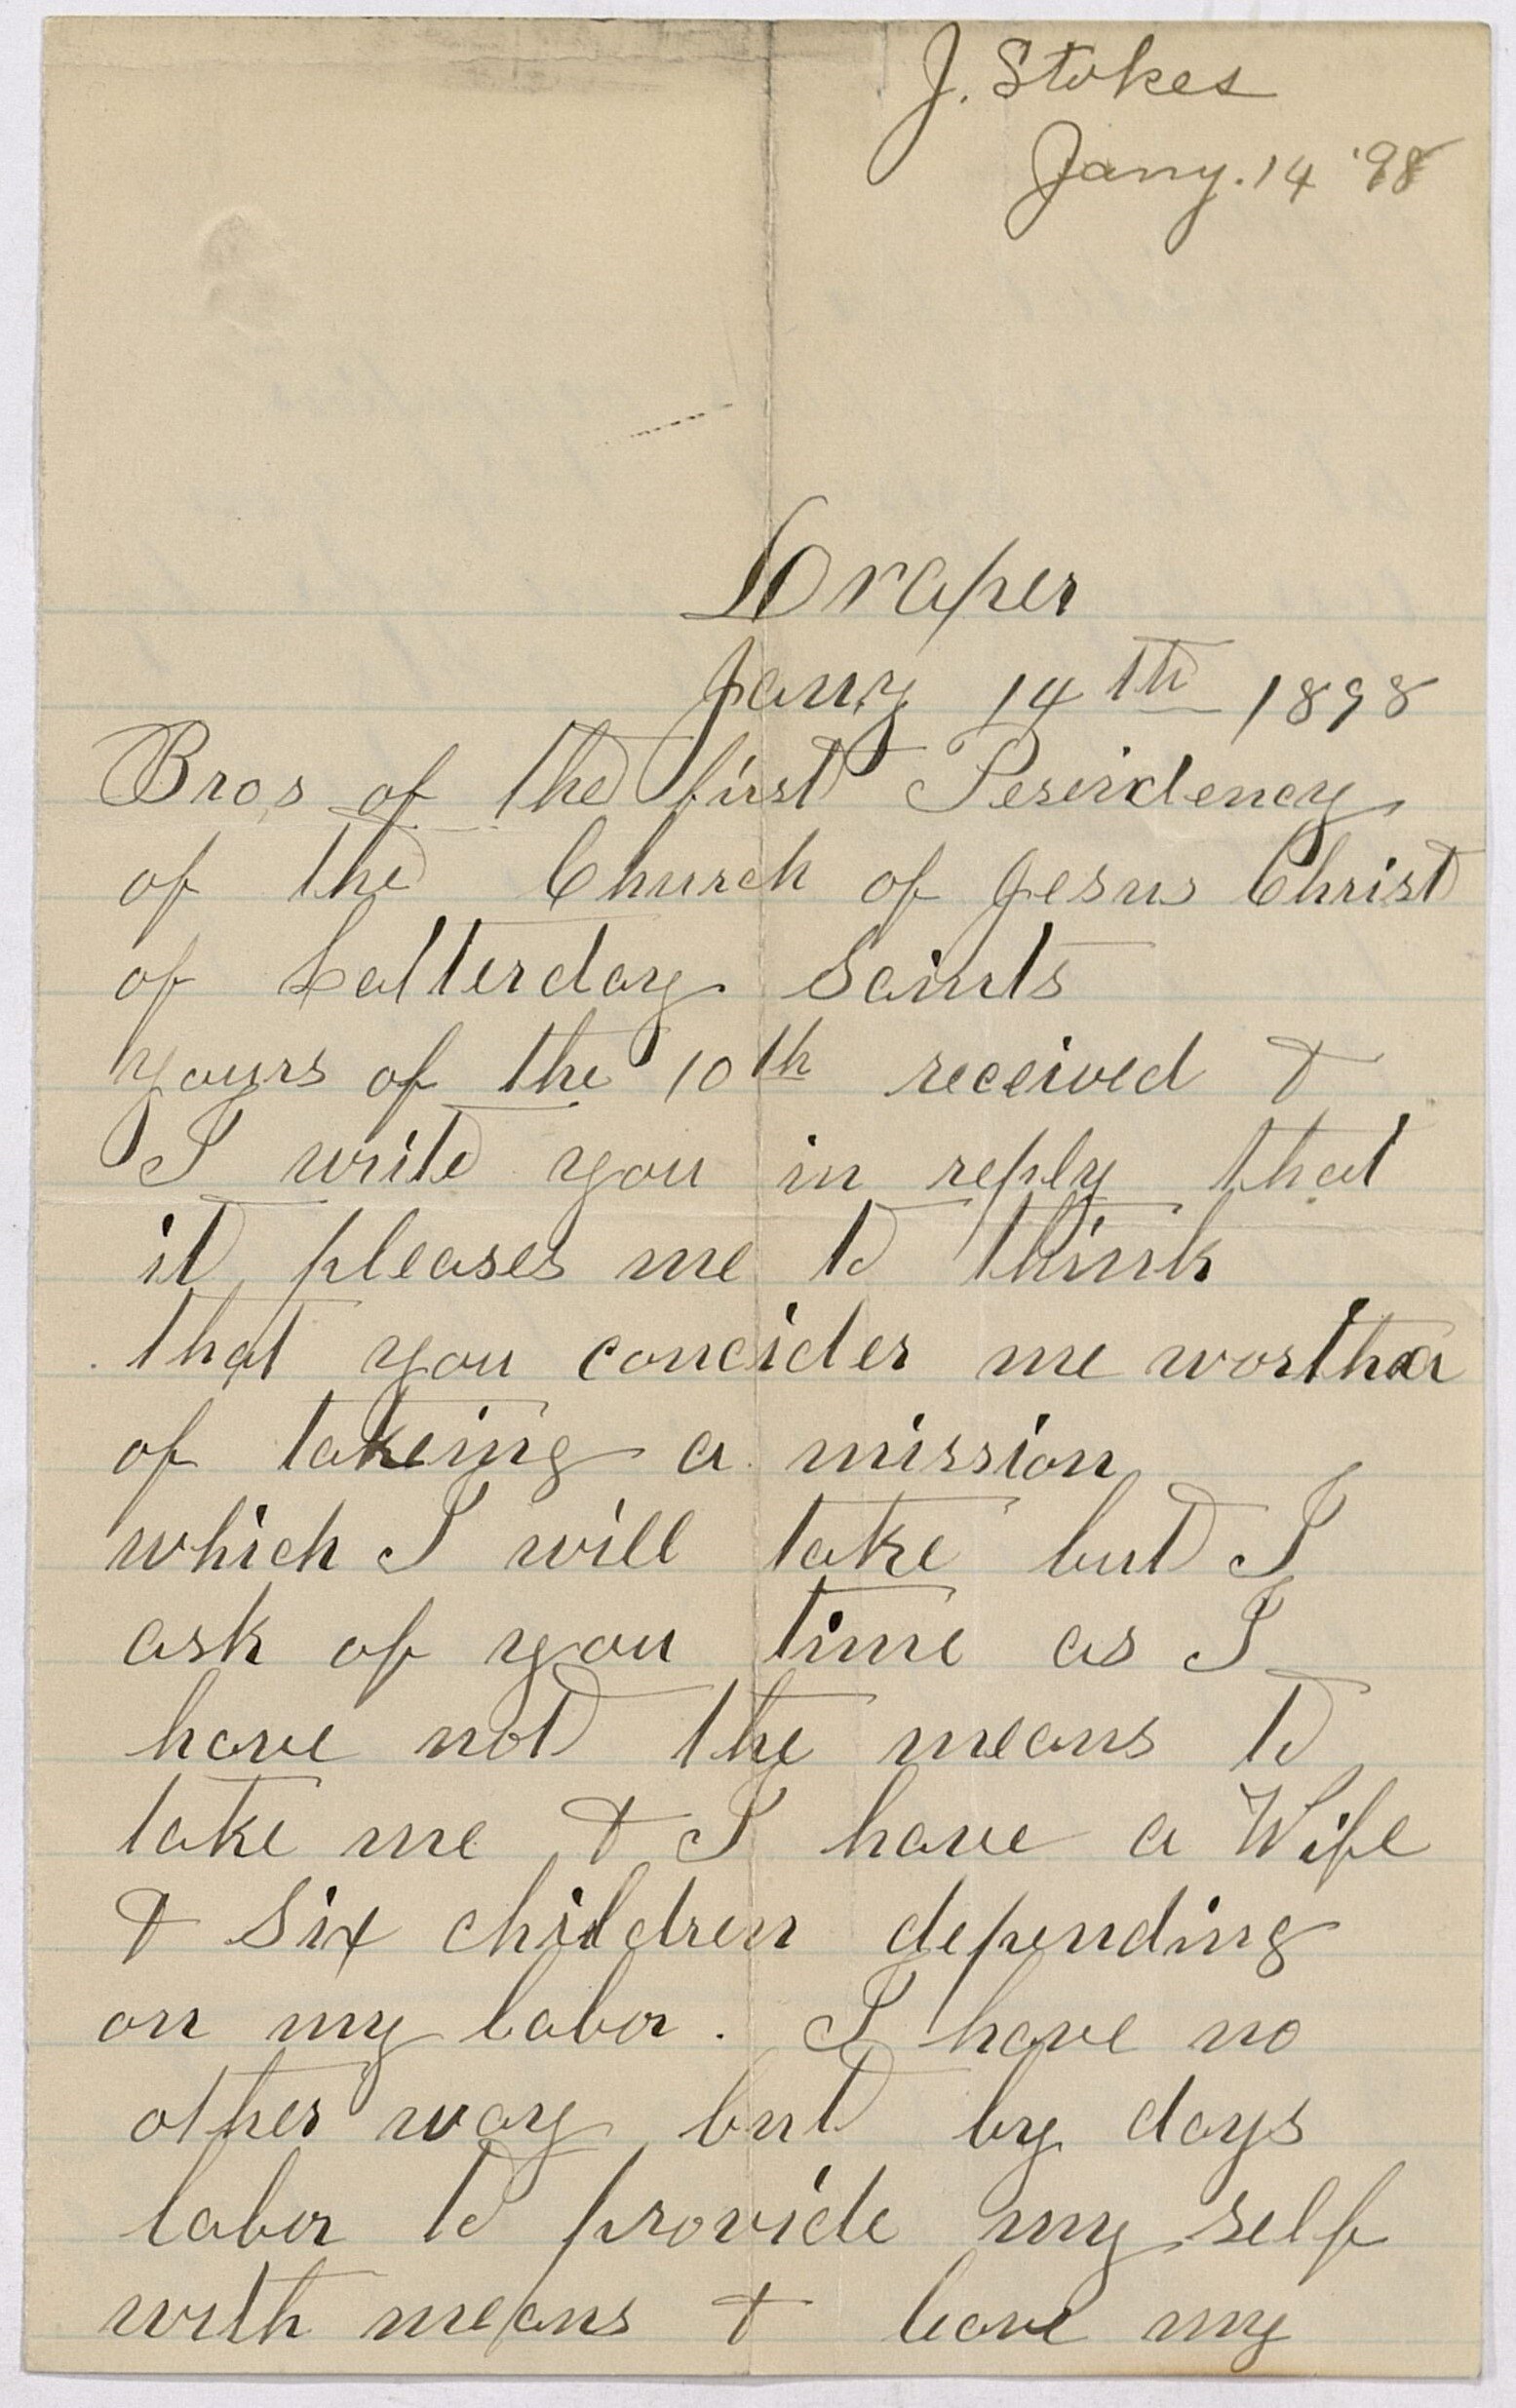 J. Stokes
Jany. 14 '98
Draper
Jany 14th 1898
Bros of the first Peseridency
of the Church of Jesus Christ
of Latterday Saints
yours of the 10th received &
I write you in reply that
it pleases me to think
that you concider me wortha
of takeing a mission
which I will take but I
ask of you time as I
have not the means to
take me & I have a Wife
& six children depending
on my labor. I have no
other way but by days
labor to provide my self
with means & leave my